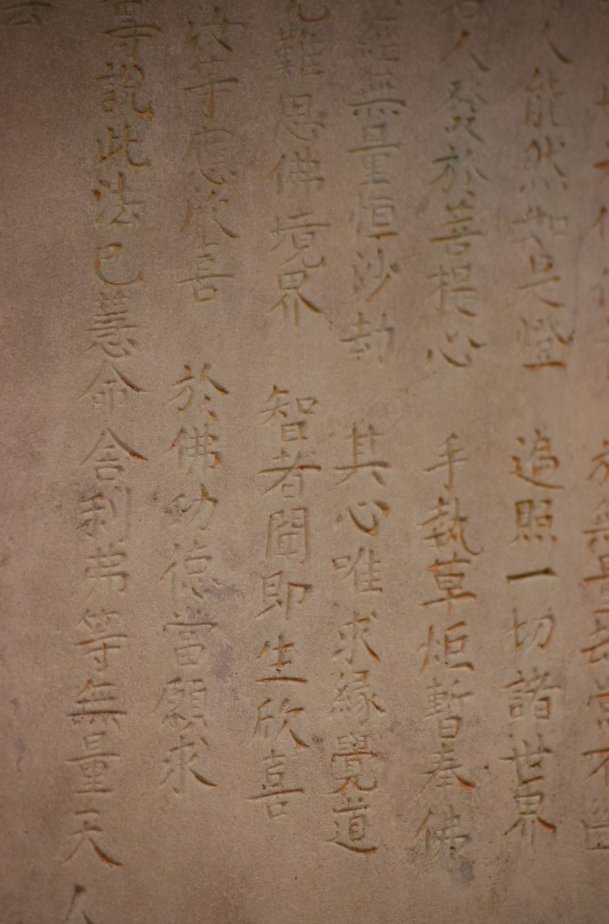 人能然如是燈　遍照一切諸世界
人發於菩提心　手執草炬暫奉佛
經無量恒沙劫　其心唯求緣覺道
難思佛境界　智者聞即生欣喜
汝等應欣喜　於佛功德當願求
等說此法已慧命舍利弗等無量天人